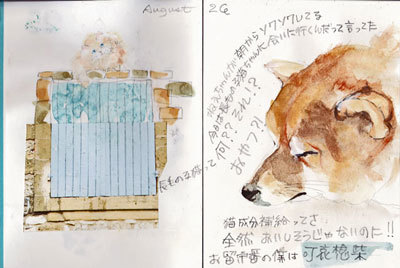 August
26
ねえちゃんが朝からソワソワしてる
今日は長もの子猫ちゃんに会いに行くんだって言ってた
長もの子猫って何?? それ!?
おやつ?!
猫成分補給ってさ
全然おいしそうじゃないのに!!
お留守番の僕は可哀想柴